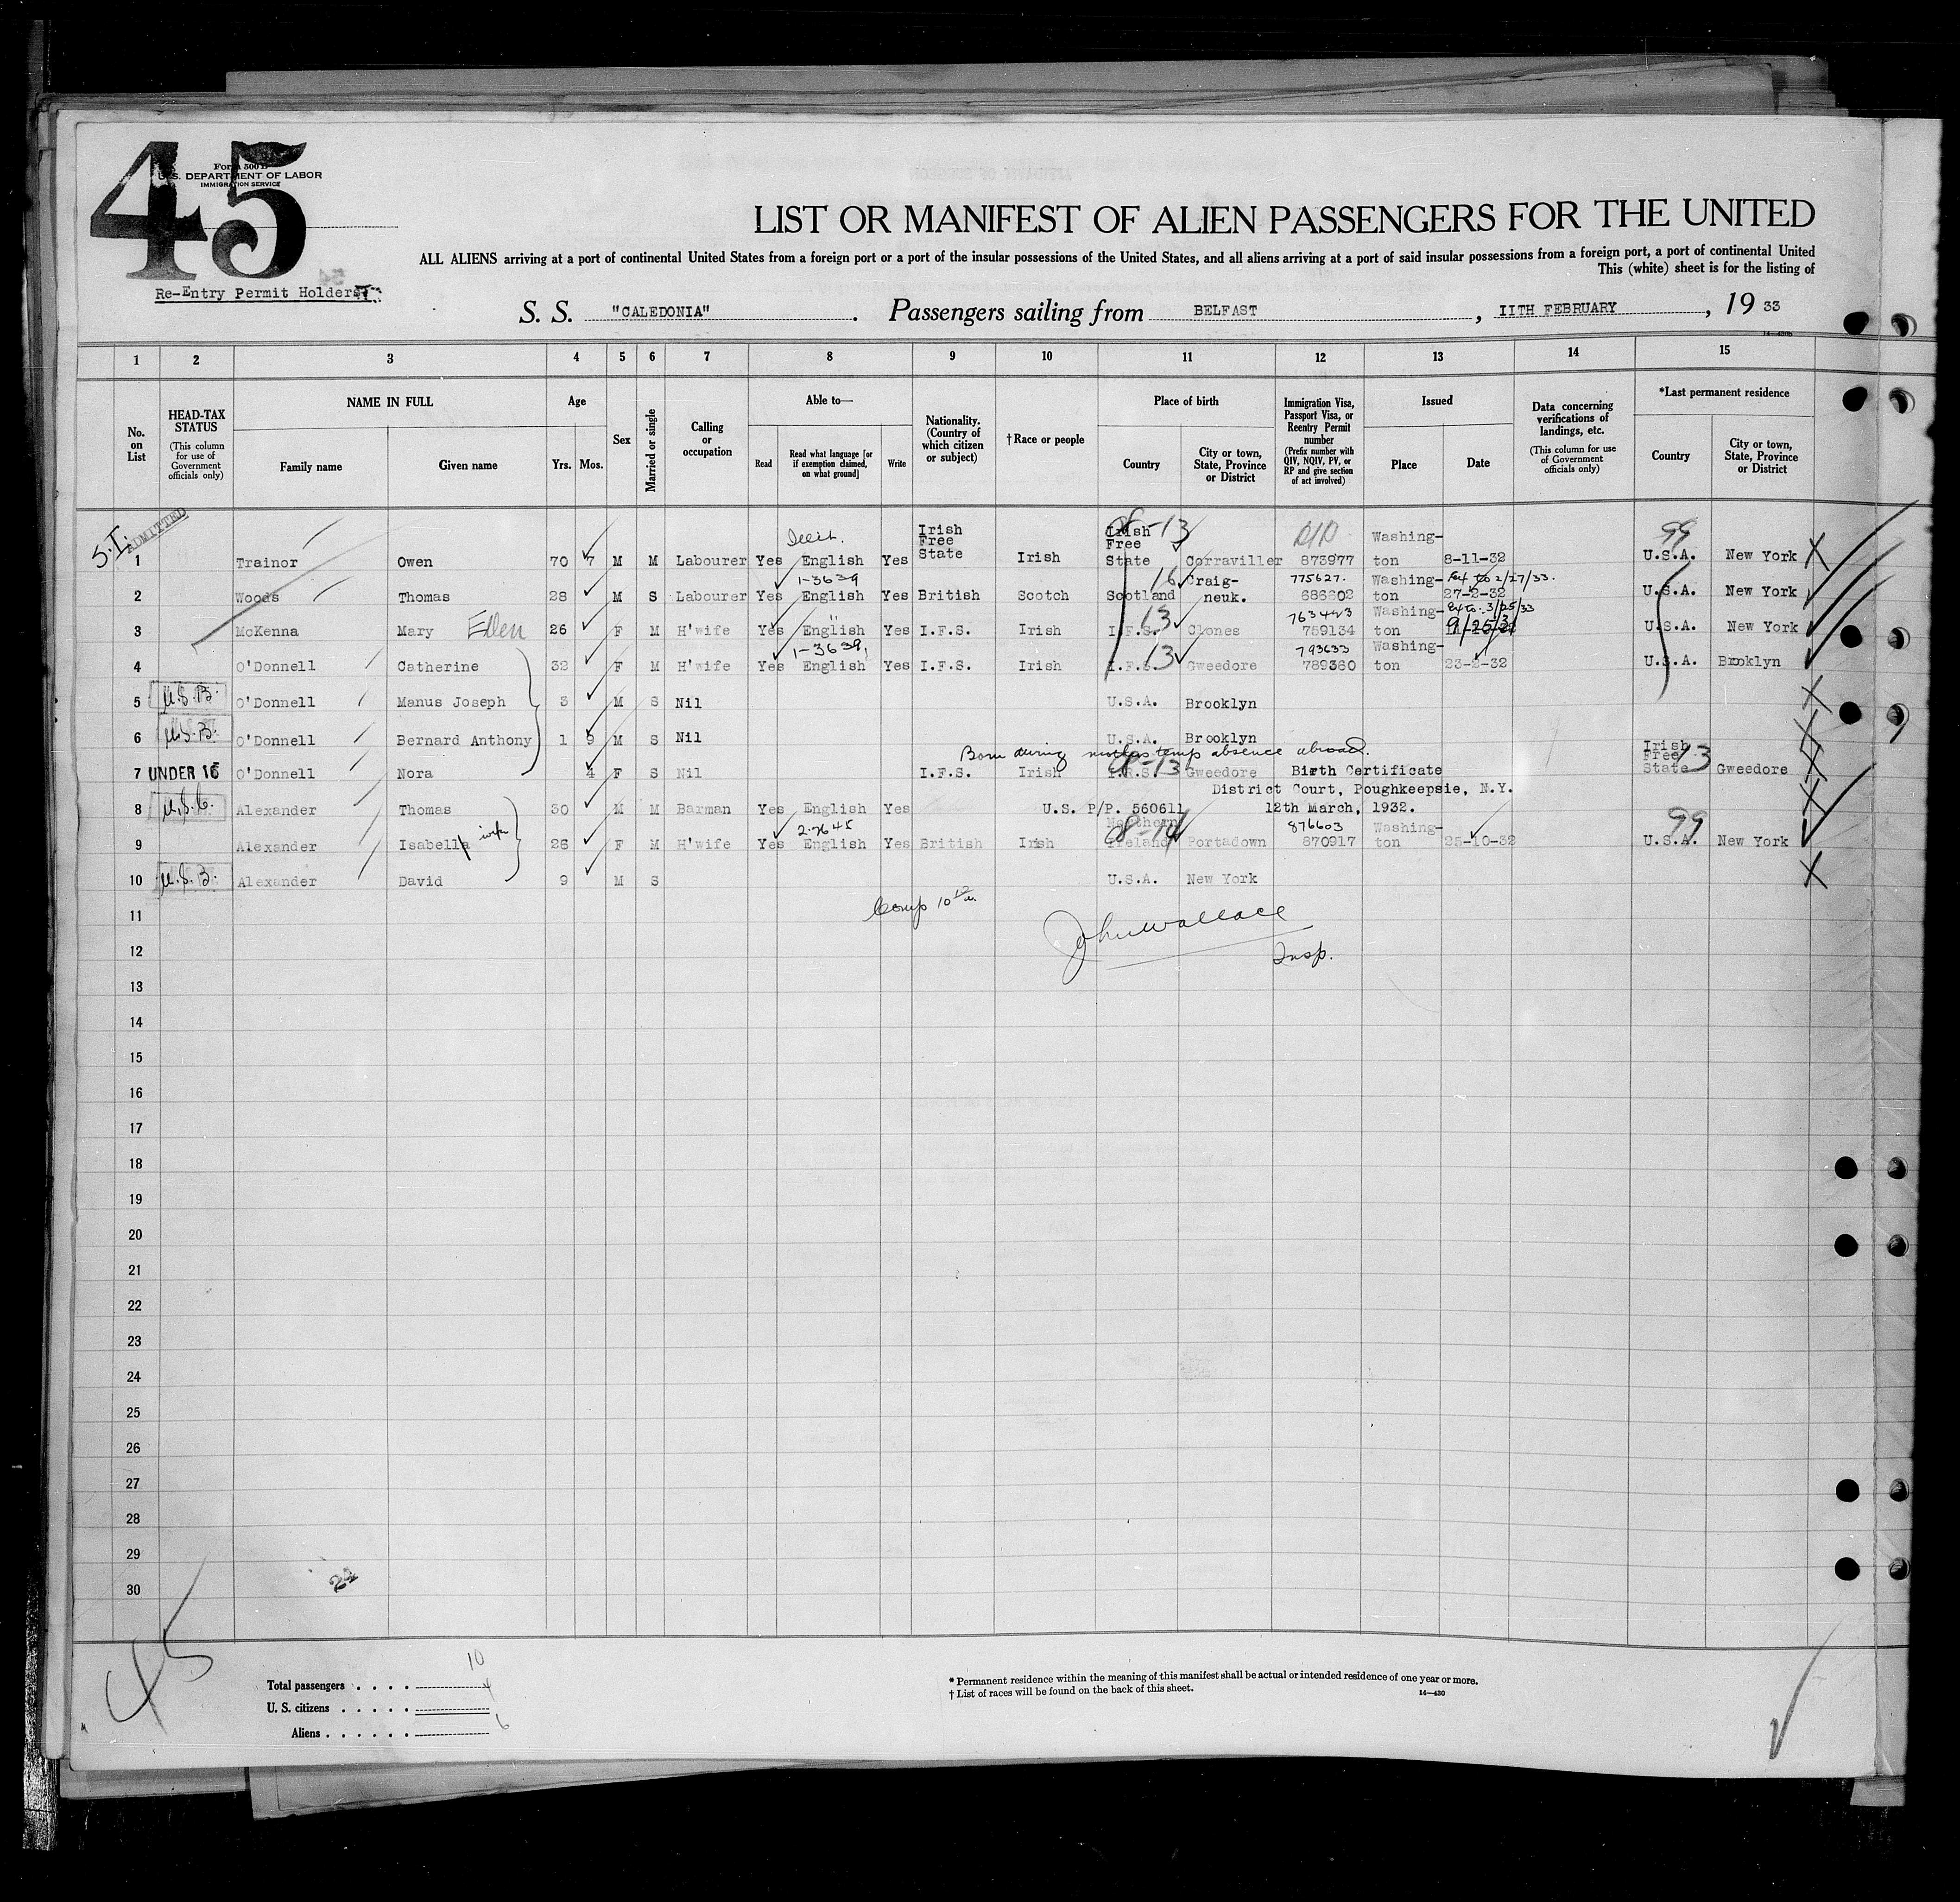 45
Form 500 B
U.S. DEPARTMENT OF LABOR
IMMIGRATION SERVICE
Re-Entry Permit Holders
LIST OR MANIFEST OF ALIEN PASSENGERS FOR THE UNITED
ALL ALIENS arriving at a port of continental United States from a foreign port or a port of the insular possessions of the United States, and all aliens arriving at a port of said insular possessions from a foreign port, a port of continental United
This (white) sheet is for the listing of
S. S. "CALEDONIA". Passengers sailing from BELFAST, 11TH FEBRUARY, 19 33
1 2 3 4 5 6 7 8 9 10 11 12 13 14 15
No. on List
HEAD-TAX STATUS (This column for use of Government officials only)
NAME IN FULL
Family name Given name
Age
Yrs. Mos.
Sex
Married or single
Calling or occupation
Able to—
Read Read what language [or if exemption claimed, on what ground] Write
Nationality. (Country of which citizen or subject)
†Race or people
Place of birth
Country City or town, State, Province or District
Immigration Visa, Passport Visa, or Reentry Permit number (Prefix number with QIV, NQIV, PV, or RP and give section of act involved)
Issued
Place Date
Data concerning verifications of landings, etc. (This column for use of Government officials only)
*Last permanent residence
Country City or town, State, Province or District
S.I. ADMITTED
1 Trainor Owen 70 7 M M Labourer Yes English Yes Irish Free State Irish Irish Free State 08-13 Corraviller 873977 Washington 8-11-32 99 U.S.A. New York
1-3639 16 775627. Ext to 2/27/33.
2 Woods Thomas 28 M S Labourer Yes English Yes British Scotch Scotland Craigneuk. 686602 Washington 27-2-32 U.S.A. New York
13 763443 Ext to. 3/25/33
3 McKenna Mary Ellen 26 F M H'wife Yes English Yes I.F.S. Irish I.F.S. Clones 759134 Washington U.S.A. New York
1-3639 13 793633
4 O'Donnell Catherine 32 F M H'wife Yes English Yes I.F.S. Irish I.F.S. Gweedore 789360 Washington 23-2-32 U.S.A. Brooklyn
5 U.S.B. O'Donnell Manus Joseph 3 M S Nil U.S.A. Brooklyn
6 U.S.B. O'Donnell Bernard Anthony 1 9 M S Nil U.S.A. Brooklyn
Born during mothers temp absence abroad.
7 UNDER 16 O'Donnell Nora 4 F S Nil I.F.S. Irish I.R.S. 08-13 Gweedore Birth Certificate Irish Free State 13 Gweedore
District Court, Poughkeepsie, N.Y.
8 U.S.C. Alexander Thomas 30 M M Barman Yes English Yes U.S. P/P. 560611 12th March, 1932.
2-2645 08-14 876603 99
9 Alexander Isabella wife 26 F M H'wife Yes English Yes British Irish Northern Ireland Portadown 870917 Washington 25-10-32 U.S.A. New York
10 U.S.B. Alexander David 9 M S U.S.A. New York
11
12
John Wallace
Insp.
13
14
15
16
17
18
19
20
21
22
23
24
25
26
27
28
29
30
24
45
Total passengers . . . . 10
U. S. citizens . . . . . 4
Aliens . . . . . . 6
* Permanent residence within the meaning of this manifest shall be actual or intended residence of one year or more.
† List of races will be found on the back of this sheet.
14—430